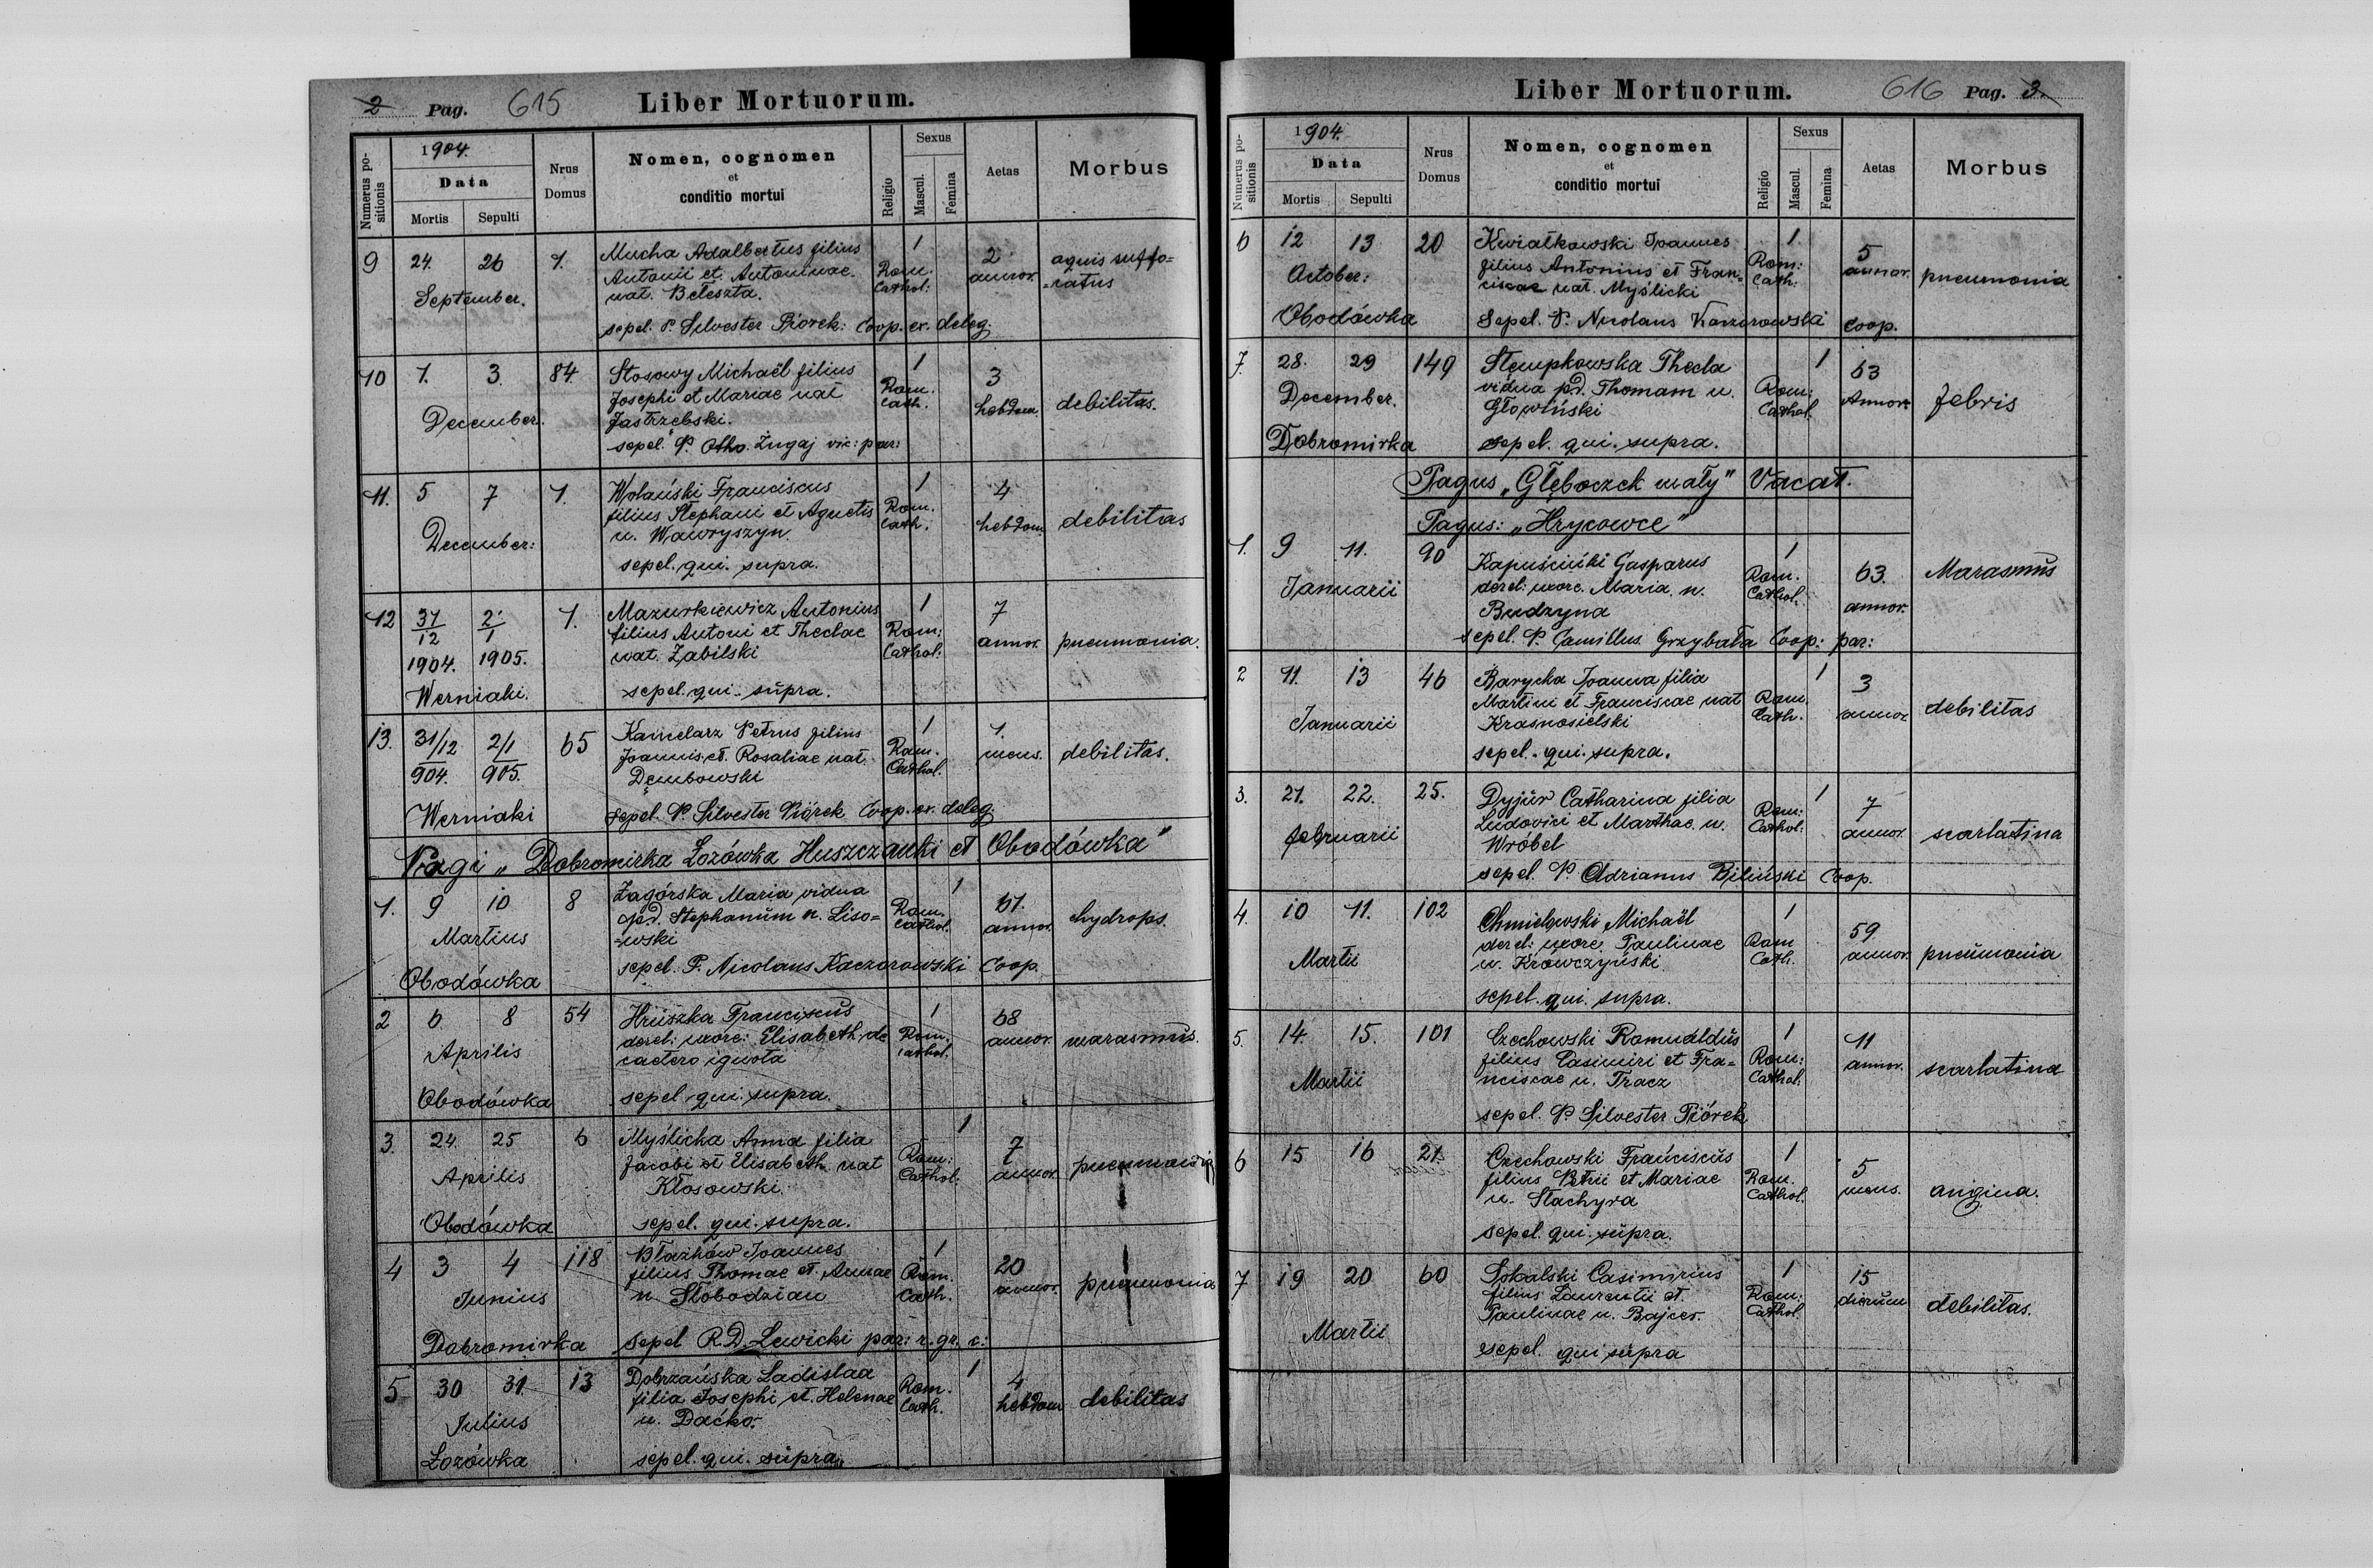 2 Pag. 615 Liber Mortuorum.
Numerus positionis
1904.
Data
Mortis Sepulti
Nrus Domus
Nomen, cognomen
et
conditio mortui
Religio
Sexus
Mascul. Femina
Aetas
Morbus
9 24. 26 1. Mucha Adalbertus filius 1 2 aquis suffo=
Antonii et Antoninae. Rom. annor. =catus
September. nat. Beleszta. Cathol:
sepel. P. Silvester Piórek: Coop. ex. deleg.
10 1. 3. 84. Stosowy Michaël filius 1 3
Josephi et Mariae nat Rom. hebdom. debilitas.
December. Jastrzebski. Cath.
sepel. P. Otho. Żugaj vic: par:
11. 5 7 1. Wolański Franciscus 1 4
filius Stephani et Agnetis Rom. hebdom. debilitas
December: n. Wawryszyn. Cath.
sepel. qui. supra.
12 31/12 2/1 1. Mazurkiewicz Antonius 1 7
filius Antoni et Theclae Rom: annor. pneumonia.
1904. 1905. nat. Zabilski Cathol:
Werniaki. sepel. qui. supra.
13. 31/12 2/1 65 Kancelarz Petrus filius 1 1.
904. 905. Joannis et. Rosaliae nat. Rom. mens. debilitas.
Dembowski Cathol.
Werniaki sepel. P. Silvester Piórek Coop. ex. deleg.
Pagi „Dobromirka Łozówka Huszczanki et Obodówka"
1. 9 10 8 Zagórska Maria vidua 1 61.
p.d. Stephanum n. Liso= Rom. annor. hydrops.
Martius =wski Cathol.
Obodówka sepel. P. Nicolaus Kaczorowski Coop.
2 6 8 54 Hruszka Franciscus 1 68
derel: uxore: Elisabeth. de Rom. annor. marasmus.
Aprilis caetero ignota Cathol.
Obodówka sepel. qui. supra.
3. 24. 25 6 Myślicka Anna filia 1 7
Jacobi et Elisabeth nat Rom: annor. pneumonia
Aprilis Kłosowski. Cathol:
Obodówka sepel. qui. supra.
4 3 4 118 Błażków Joannes 1 20
filius Thomae et. Annae Rom. annor. pneumonia
Junius n. Słobodzian Cath.
Dobromirka sepel R.D. Lewicki par: r. gr. c:
5 30 31 13 Dobrzańska Ladislaa 1 4
filia Josephi et. Helenae Rom. hebdom debilitas
Julius n. Daćko. Cath.
Łozówka sepel. qui. supra.
Liber Mortuorum. 616 Pag. 3.
Numerus positionis
1904.
Data
Mortis Sepulti
Nrus Domus
Nomen, cognomen
et
conditio mortui
Religio
Sexus
Mascul. Femina
Aetas
Morbus
6 12 13 20 Kwiatkowski Joannes 1. 5
October: filius Antonius et Fran= Rom: annor. pneumonia
ciscae nat. Myślicki Cath:
Obodówka Sepel. P. Nicolaus Kaczorowski Coop.
7. 28. 29 149 Stempkowska Thecla 1 63
December. vidua p.d. Thomam n. Rom: Annor. febris
Głowiński Cathol.
Dobromirka sepel. qui. supra.
Pagus „Głęboczek mały" Vacat.
Pagus: „Hrycowce"
1. 9 11. 90 Kapuściński Gasparus 1 63. Marasmus
Januarii derel: uxore. Maria. n. Rom. annor.
Budzyna Cathol.
sepel. P. Camillus Grzybała Coop: par:
2 11. 13 46 Barycka Joanna filia 1 3
Martini et Franciscae nat Rom. annor debilitas
Januarii Krasnosielski Cath.
sepel. qui. supra.
3. 21. 22. 25. Dyjür Catharina filia 1 7
Ludovici et Marthae. n. Rom: annor. scarlatina
februarii Wróbel Cathol.
sepel. P. Adrianus Biliński Coop.
4. 10 11. 102 Chmielowski Michaël 1 59
derel: uxore. Paulinae Rom annor. pneumonia
Martii n. Krowczyński. Cath.
sepel. qui. supra.
5. 14. 15. 101 Czechowski Romualdus 1 11
filius Casimiri et Fra= Rom: annor. scarlatina
Martii nciscae n. Tracz Cathol.
sepel. P. Silvester Piórek
6 15 16 21. Czechowski Franciscus 1 5
filius Petrii et Mariae Rom. mens. angina.
n. Stachyra Cathol.
sepel. qui. supra.
7 19 20 60 Sokalski Casimirius 1 15
filius Laurentii et. Rom: dierum debilitas.
Martii Paulinae n. Bajcer. Cathol
sepel. qui supra